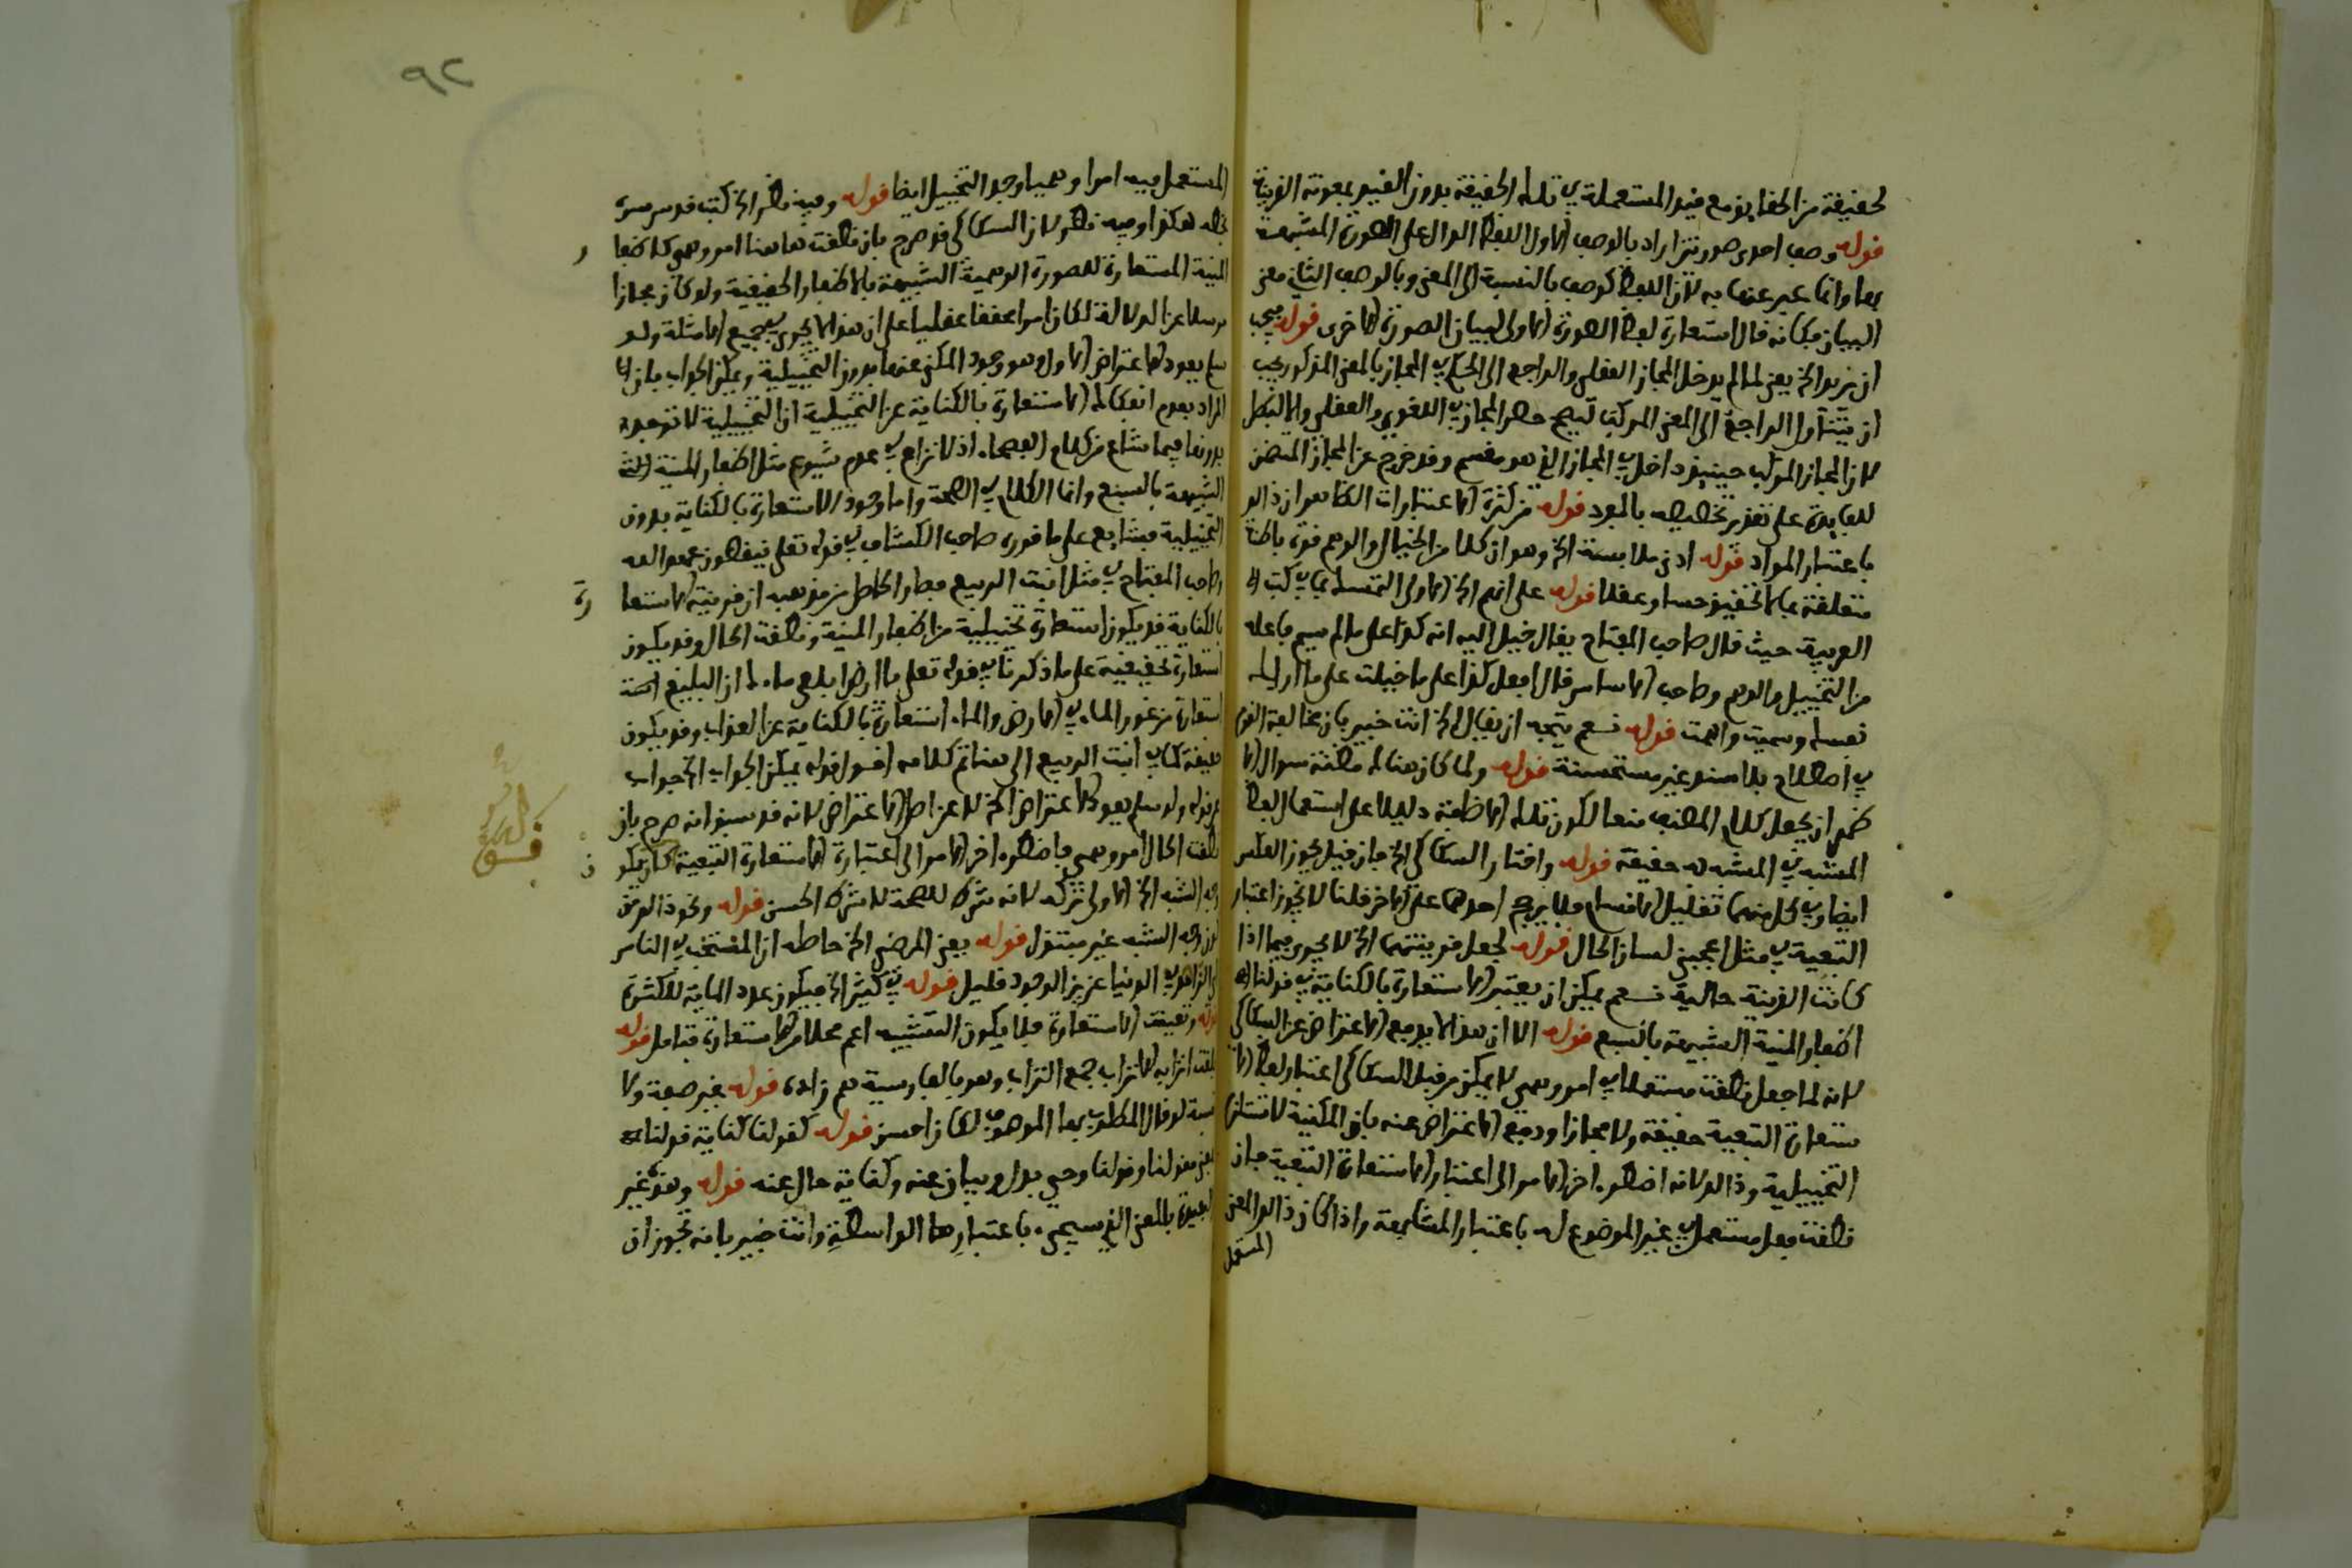 لحقيقة من الحقايق مع قيد المستعملة في تلك الحقيقة بدون القيد بمعونة القرينة
قوله وصف احدى صورتين اراد بالوصف الاول اللفظ الدال على الصورة المشبهة
بها وانما عبر عنها به لان اللفظ كوصف بالنسبة الى المعنى وبالوصف الثاني معنى
البيان فكانه قال استعارة لفظ الصورة الاولى لبيان الصورة الاخرى قوله يجب
ان يريد الخ يعني لما لم يدخل المجاز العقلي والراجع الى الحكم في المجاز بالمعنى المذكور يجب
ان يتناول الراجع الى المعنى المركب ليصح حصر المجاز في اللغوي والعقلي والا لبطل
لان المجاز المركب حينيذ داخل في المجاز الذي هو مقسم وقد خرج عن المجاز المتضمن
للفايدة على تقدير تخصيصه بالمفرد قوله من كثرة الاعتبارات الظاهر ان ذالك
باعتبار المواد قوله ادنى ملابسة الخ وهو ان كلا من الخيال والوهم قوة باطنة
متعلقة بما لا تحقيق حسا وعقلا قوله على انهم الخ الاولى التمسك بما في كتب
العربية حيث قال صاحب المفتاح يقال خيل اليه انه كذا على ما لم يسم فاعله
من التخييل والوهم وصاحب الاساس قال افعل كذا على ما خيلت على ما ارتك
نفسك وسميت واهمت قوله نعم يتجه ان يقال الخ انت خبير بان مخالفة القوم
في اصطلاح بلا سند غير مستحسنة قوله ولما كان هنا لك مظنة سوال
ظهر ان يجعل كلام المصنف منعا لكون تلك الاضافة دليلا على استعمال لفظ
المشبه في المشبه به حقيقة قوله واختار السكاكي الخ فان قيل يجوز العكس
ايضا وفي كل منهما تقليل الاقسام فلا يرجح احدهما على الاخر قلنا لا يجوز اعتبار
التبعية في مثل اعجبني لسان الحال قوله لجعل قرينتها الخ لا يجري فيما اذا
كانت القرينة حالية نعم يمكن ان يعتبر الاستعارة بالكناية في قولنا
اظفار المنية الشبيهة بالسبع قوله الا ان هذا لا يدفع الاعتراض عن السكاكي
لانه لما جعل نطقت مستعملا في امر وهمي لا يمكن من قبل السكاكي اعتبار لفظ
ستعارة التبعية حقيقة ولا مجازا ودفع الاعتراض عنه بان المكنية لا تستلزم
التخييلية وذالك لانه اضطر اخر الامر الى اعتبار الاستعارة التبعية فان
نطقت فعل مستعمل في غير الموضوع له باعتبار المشابهة واذا كان ذالك المعنى
المستعمل
٩٢
المستعمل فيه امرا وهميا وجد التخييل ايضا قوله وفيه نظر الخ كتب قدس سره
بخطه هكذا وفيه نظر لان السكاكي قد صرح بان نطقت هاهنا امر وهمي كاظفا
ر
المنية المستعارة للصورة الوهمية الشبيهة بالاظفار الحقيقية ولو كان مجازا
مرسلا عن الدلالة لكان امرا محققا عقليا على ان هذا لا يجري في جميع الامثلة ولو
سلم يعود الاعتراض الاول وهو وجود المكني عنها بدون التخييلية ويمكن الجواب بان
المراد بعدم انفكاك الاستعارة بالكناية عن التخييلية ان التخييلية لا توجد
بدونها فيما شاع من كلام الفصحاء اذ لا نزاع في عدم شيوع مثل اظفار المنية
الشبيهة بالسبع وانما الكلام في الصحة واما وجود الاستعارة بالكناية بدون
التخييلية فشايع على ما قرره صاحب الكشاف في قوله تعلى ينقضون عهد الله
وصاحب المفتاح في مثل انبت الربيع فصار الحاصل من مذهبه ان قرينة الاستعا
رة
بالكناية قد يكون استعارة تخييلية من اظفار المنية ونطقت الحال وقد يكون
استعارة تحقيقية على ما ذكرنا في قوله تعلى يا ارض ابلعي ماءك ان البليغ
استعارة من غور الماء في الارض والماء استعارة بالكناية عن الغذاء وقد يكون
حقيقة كما في انبت الربيع الى هنا تم كلامه اقول قوله يمكن الجواب الخ جواب
عن قوله ولو سلم يعود الاعتراض الخ لا عن اصل الاعتراض لانه قد سبق انه صرح بان
نطقت الحال امر وهمي فاضطر اخر الامر الى اعتباره الاستعارة التبعية كان يكو
ن
وجه الشبه الخ الاولى تركه لانه شرط للصحة لا شرط الحسن قوله ونحو ذالك من
كون وجه الشبه غير مبتذل قوله يعني المرضي الخ حاصله ان المنتخب في الناس
كالزاهد في الدنيا عزيز الوجود قليل قوله في كثير الخ فيكون عدد الماية للكثرة
قوله وتعينت الاستعارة فلا يكون التشبيه اعم محلا من الاستعارة فتامل قوله
الاتراب جمع الترب وهو بالفارسية هم زاده قوله بغير صفة ولا
نسبة لو قال المطلوب بها الموصوف لكان احسن قوله كقولنا كناية قولنا
وقولنا وحي بدل وبيان عنه وكناية حال عنه قوله وهو غير
البعيدة بالمعنى الذي سيجيء باعتبار هذا الواسطة وانت خبير بانه يجوز ان